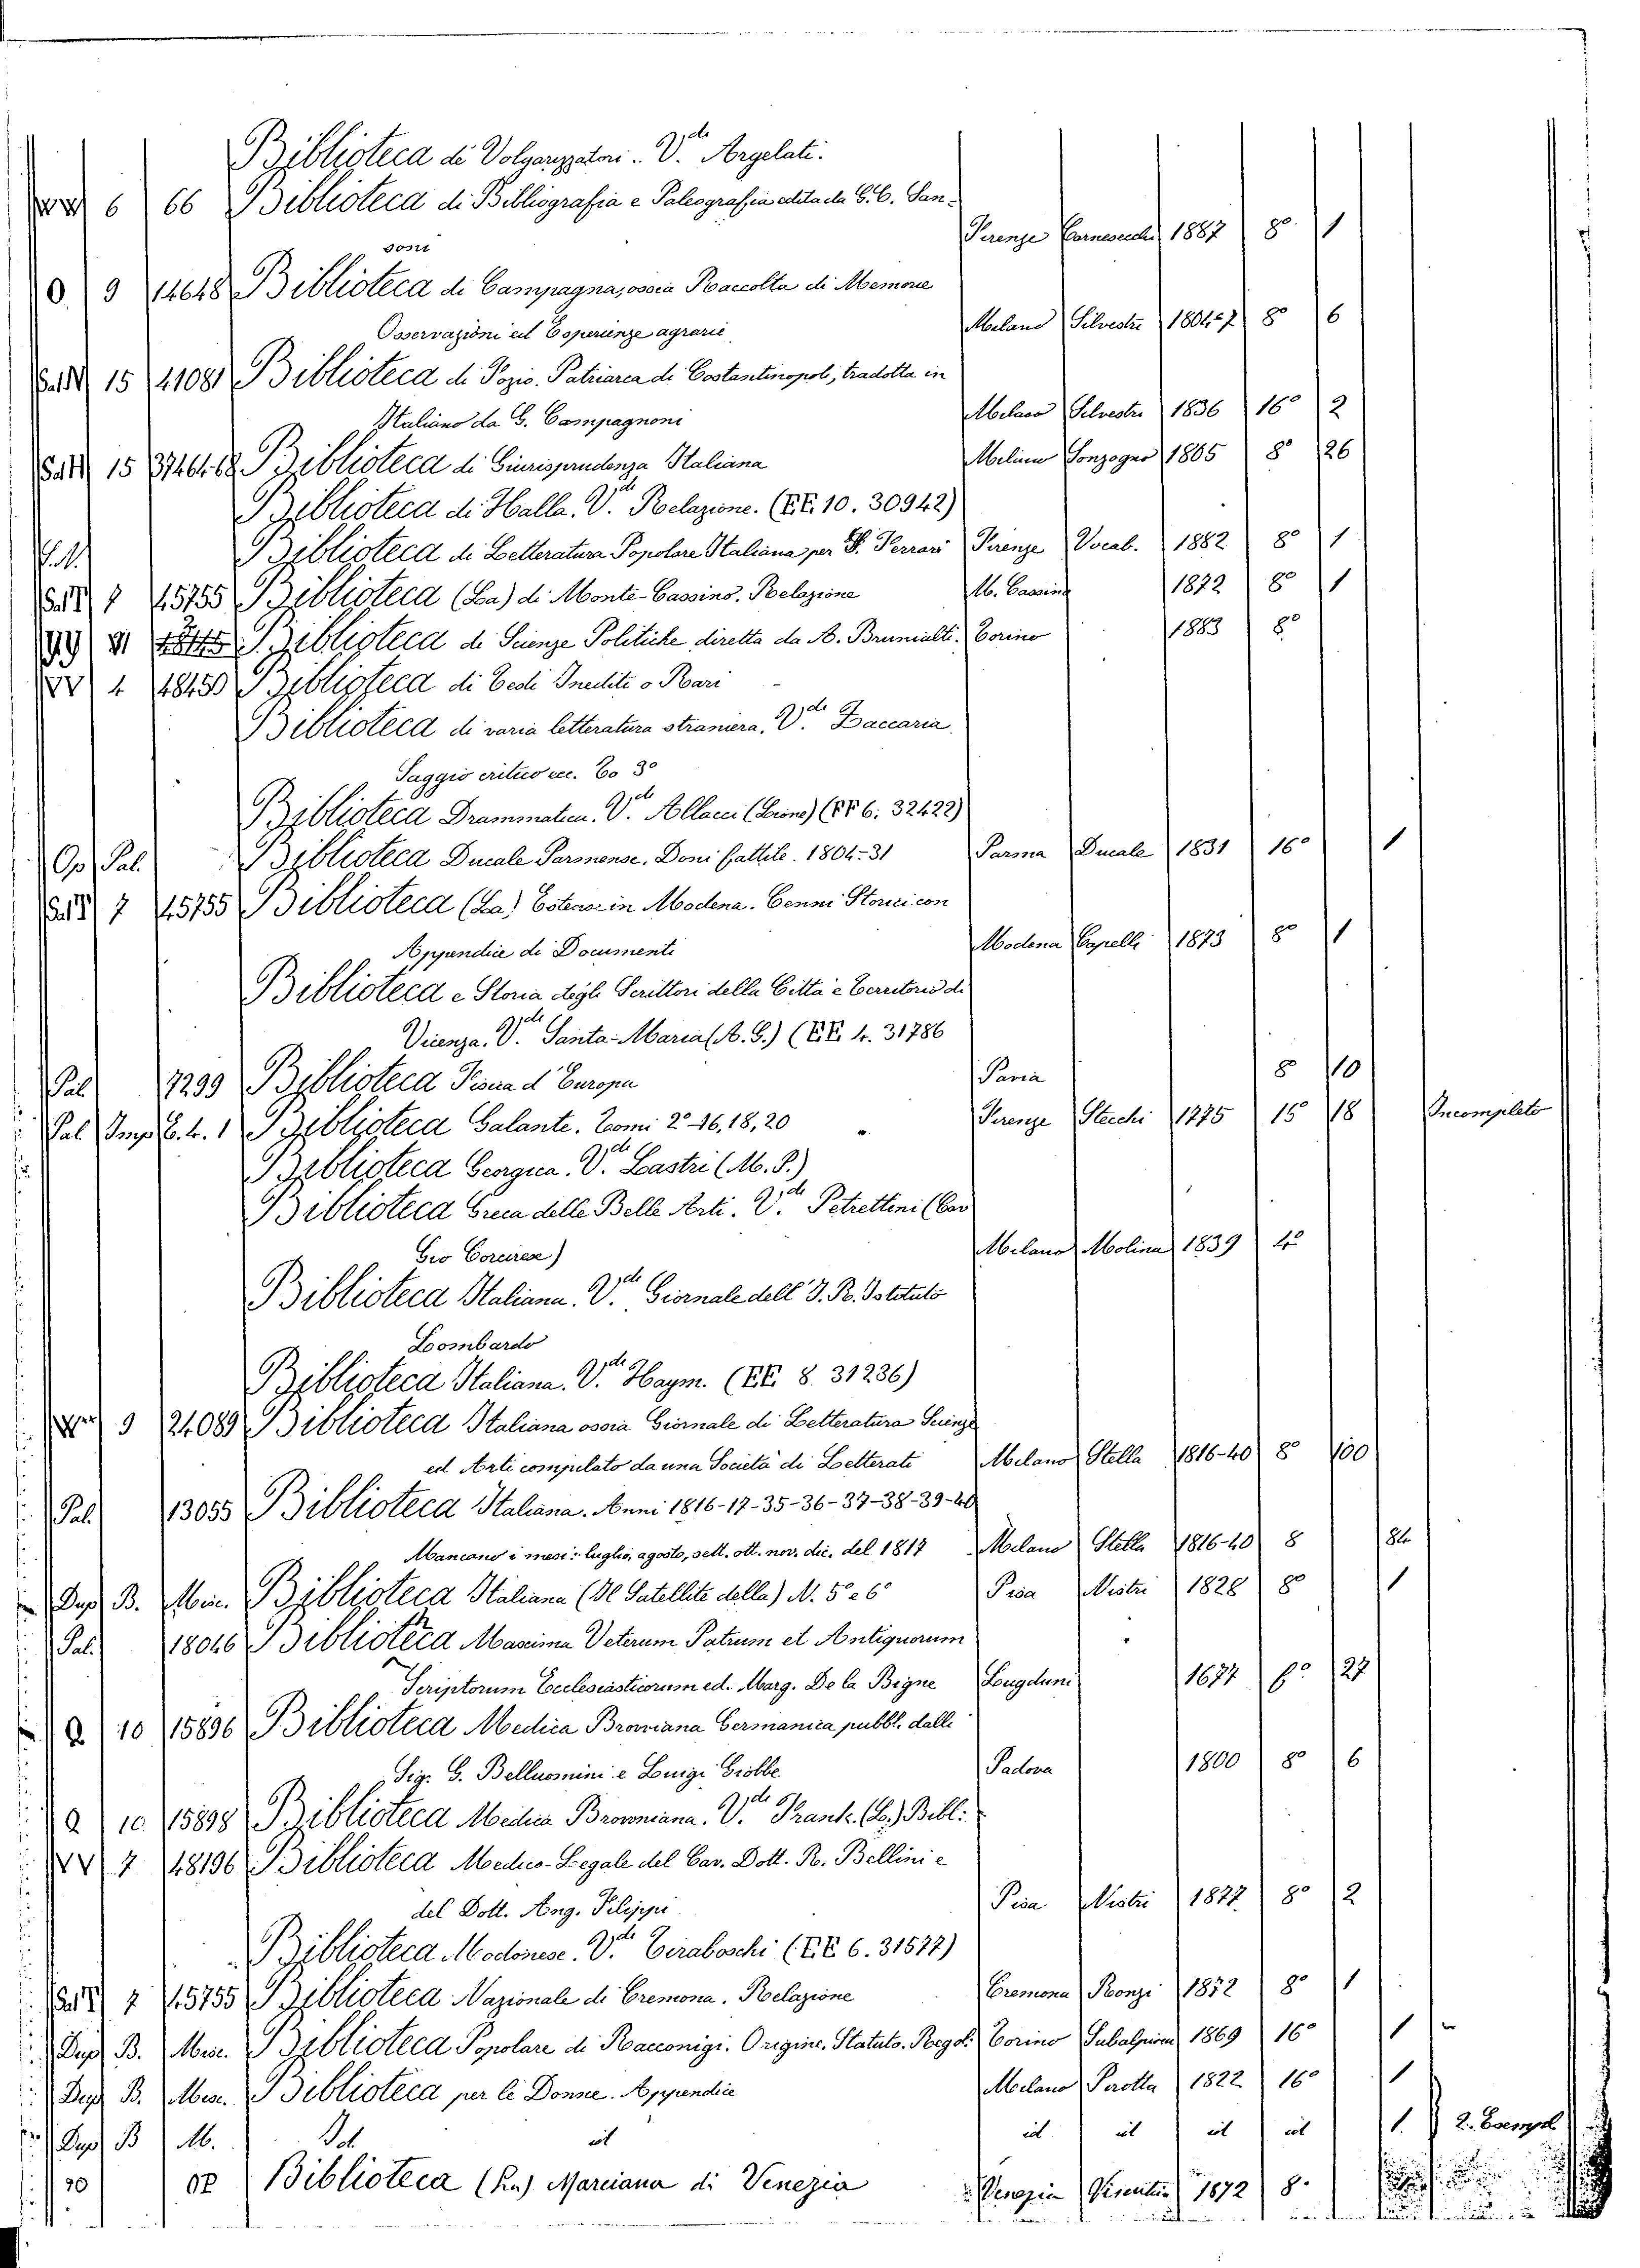 Biblioteca di Volgarizzatori. V.de Argelati.
6 66 Biblioteca di Bibliografia e Paleografia edita da G. C. San-
soni Firenze Carnesecchi 1887 8º 1
0 9 14648 Biblioteca di Campagna, ossia Raccolta di Memorie
Osservazioni ed Esperienze agrarie Milano Silvestri 1804-7 8º 6
15 41081 Biblioteca di Fozio. Patriarca di Costantinopol, tradotta in
Italiano da G. Campagnoni Milano Silvestri 1836 16º 2
15 Biblioteca di Giurisprudenza Italiana Milano Sonzogno 1805 8º 26
Biblioteca di Halla. V.de Relazione. (EE. 10. 30942)
Biblioteca di Letteratura Popolare Italiana per S. Ferrari Firenze Vocab. 1882 8º 1
7 45755 Biblioteca (La) di Monte-Cassino. Relazione M. Cassino 1872 8º 1
Biblioteca di Scienze Politiche diretta da A. Brunialti. Torino 1883 8º
4 Biblioteca di Testi Inediti o Rari
Biblioteca di varia letteratura straniera. V.de Zaccaria
Saggio critico ecc. To 3º
Biblioteca Drammatica. V.de Allacci (Lione) (EE 6. 32422)
Op Pal. Biblioteca Ducale Parmense. Doni fattile. 1804-31 Parma Ducale 1831 16º 1
7 45755 Biblioteca (La) Estense in Modena. Cenni Storici con
Appendice di Documenti Modena Capelli 1873 8º 1
Biblioteca e Storia degli Scrittori della Città e Territorio di
Vicenza. V.de Santa-Maria (A. G.) (EE 4. 31786
Pal. 7299 Biblioteca Fisica d'Europa Pavia 8 10
Pal. Imp 6. 4. 1 Biblioteca Galante. Tomi 2º 16, 18, 20 Firenze Stecchi 1775 15 18 Incompleto
Biblioteca Georgica. V.de Lastri (M. P.)
Biblioteca Greca delle Belle Arti. V.de Petrettini (Cav
Gio Corcirese) Milano Molina 1839 4º
Biblioteca Italiana. V.de Giornale dell' I. R. Istituto
Lombardo
Biblioteca Italiana. V.de Haym. (EE. 8 31236)
9 24089 Biblioteca Italiana ossia Giornale di Letteratura Scienze
ed Arti compilato da una Società di Letterati Milano Stella 1816-40 8º 100
Pal. 13055 Biblioteca Italiana. Anni 1816-17-35-36-37-38-39-40
Mancano i mesi: luglio, agosto, sett. ott. nov. dic. del 1817 Milano Stella 1816-40 8 84
Dup B. Misc. Biblioteca Italiana (Il Satellite della) N. 5º e 6º Pisa Nistri 1828 8º 1
Pal. 18046 Biblioteca Maxima Veterum Patrum et Antiquorum
Scriptorum Ecclesiasticorum ed. Marg. De la Bigne Lugduni 1677 fº 27
Q 10 15896 Biblioteca Medica Browniana Germanica pubbl. dalli
Sig. G. Belluomini e Luigi Grobbe Padova 1800 8º 6
Q 10 15898 Biblioteca Medica Browniana. V.de Frank. (L.) Bibl.
VV 7 48196 Biblioteca Medico-Legale del Cav. Dott. R. Bellini e
del Dott. Ang. Filippi Pisa Nistri 1877 8º 2
Biblioteca Modonese. V.de Tiraboschi (EE 6. 31577)
7 45755 Biblioteca Nazionale di Cremona. Relazione Cremona Ronzi 1872 8º 1
Dup B. Misc. Biblioteca Popolare di Racconigi. Origine, Statuto. Regol. Torino Subalpina 1869 16º 1
Dup B. Misc. Biblioteca per le Donne. Appendice Milano Pirotta 1822 16º 1
Dup B M. Id. id id id id id 1. 2. Esempl
Biblioteca (La) Marciana di Venezia Venezia Visentini 1872 8.